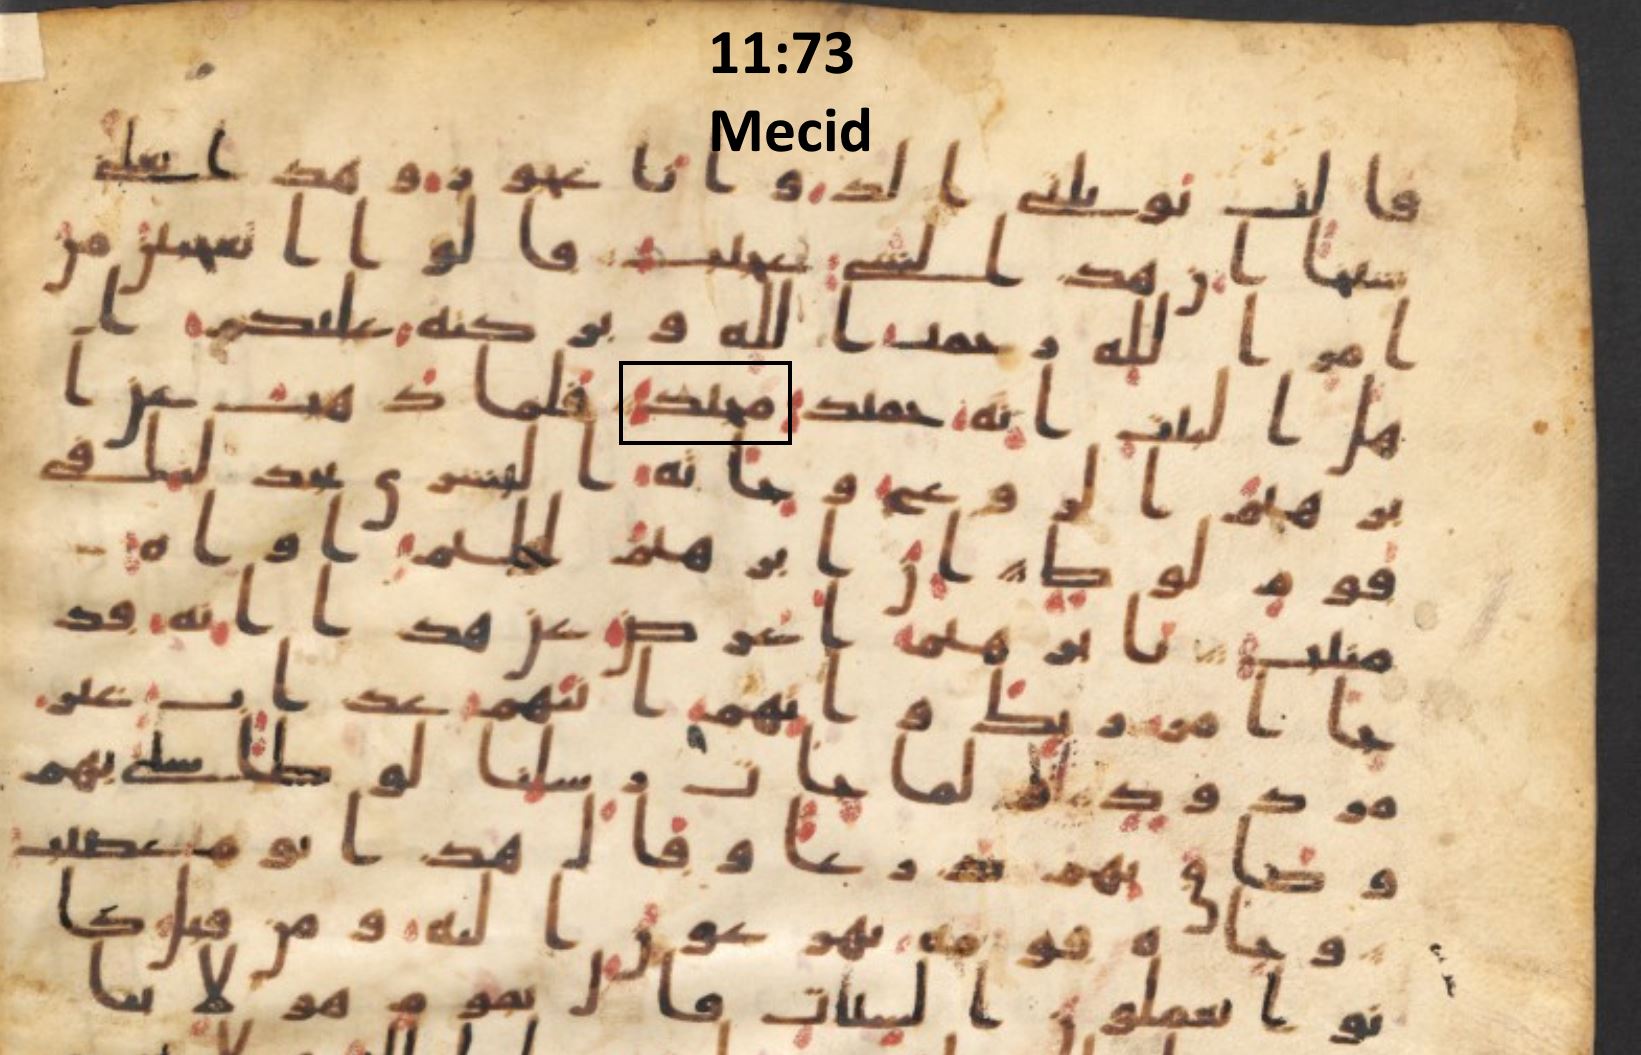 11:73
Mecid
قالت يويلتى الد وانا عجوز وهذا بعلى
شيخا ان هذا لشى عجيب قالوا اتعجبين من
امر الله رحمت الله وبركته عليكم ا
هل البيت انه حميد مجيد فلما ذهب عن ا
برهيم الروع وجاته البشرى يجدلنا فى
قوم لوط ان ابرهيم لحليم اواه
منيب يابرهيم اعرض عن هذا انه قد
جا امر ربك وانهم اتيهم عذاب غير
مردود ولما جات رسلنا لوطا سى بهم
وضاق بهم ذرعا وقال هذا يوم عصيب
وجاه قومه يهرعون اليه ومن قبل كا
نوا يعملون السيات قال يقوم هولا بنا